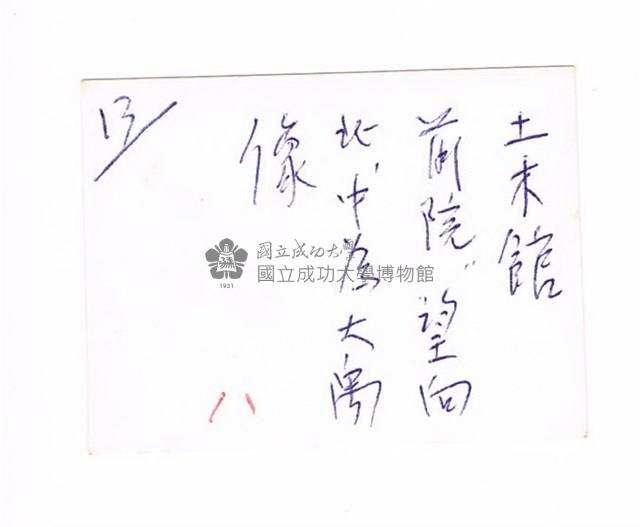 土木館
前院，望向
北，中為大禹
像
13/
八
國立成功大學
國立成功大學博物館
1931